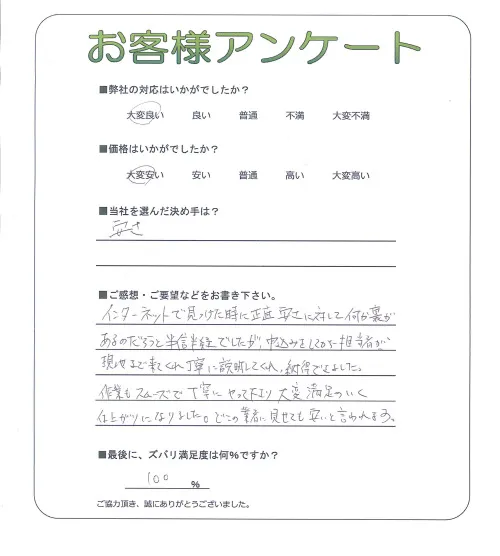 お客様アンケート
■弊社の対応はいかがでしたか？
大変良い 良い 普通 不満 大変不満
■価格はいかがでしたか？
大変安い 安い 普通 高い 大変高い
■当社を選んだ決め手は？
安さ
■ご感想・ご要望などをお書き下さい。
インターネットで見つけた時に正直安さに対して何か裏が
あるのだろうと半信半疑でしたが、申込みをしてから担当者が
現地まで来てくれ丁寧に説明してくれ、納得できました。
作業もスムーズで丁寧にやって下さり大変満足のいく
仕上がりになりました。どこの業者に見せても安いと言われる
■最後に、ズバリ満足度は何%ですか？
100 %
ご協力頂き、誠にありがとうございました。